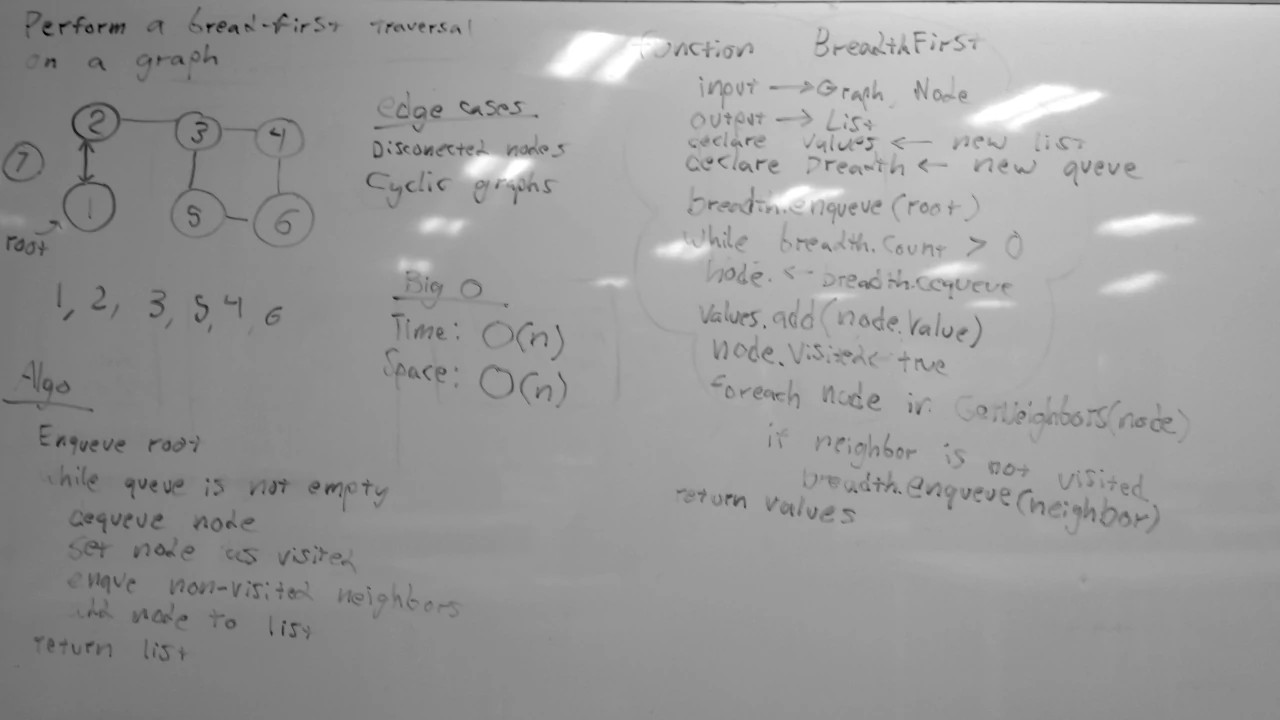 Perform a bread-first traversal
on a graph
2
3
4
7
1
5
6
root
1, 2, 3, 5, 4, 6
Algo
Enqueue root
while queue is not empty
dequeue node
set node as visited
enque non-visited neighbors
add node to list
return list
edge cases
Disconected nodes
Cyclic graphs
Big O
Time: O(n)
Space: O(n)
function BreadthFirst
input → Graph, Node
output → List
declare values ← new list
declare breadth ← new queue
breadth.enqueue(root)
while breadth.Count > 0
node. ← breadth.dequeue
values.add(node.value)
node.visited ← true
foreach node in GetNeighbors(node)
if neighbor is not visited
breadth.enqueue(neighbor)
return values